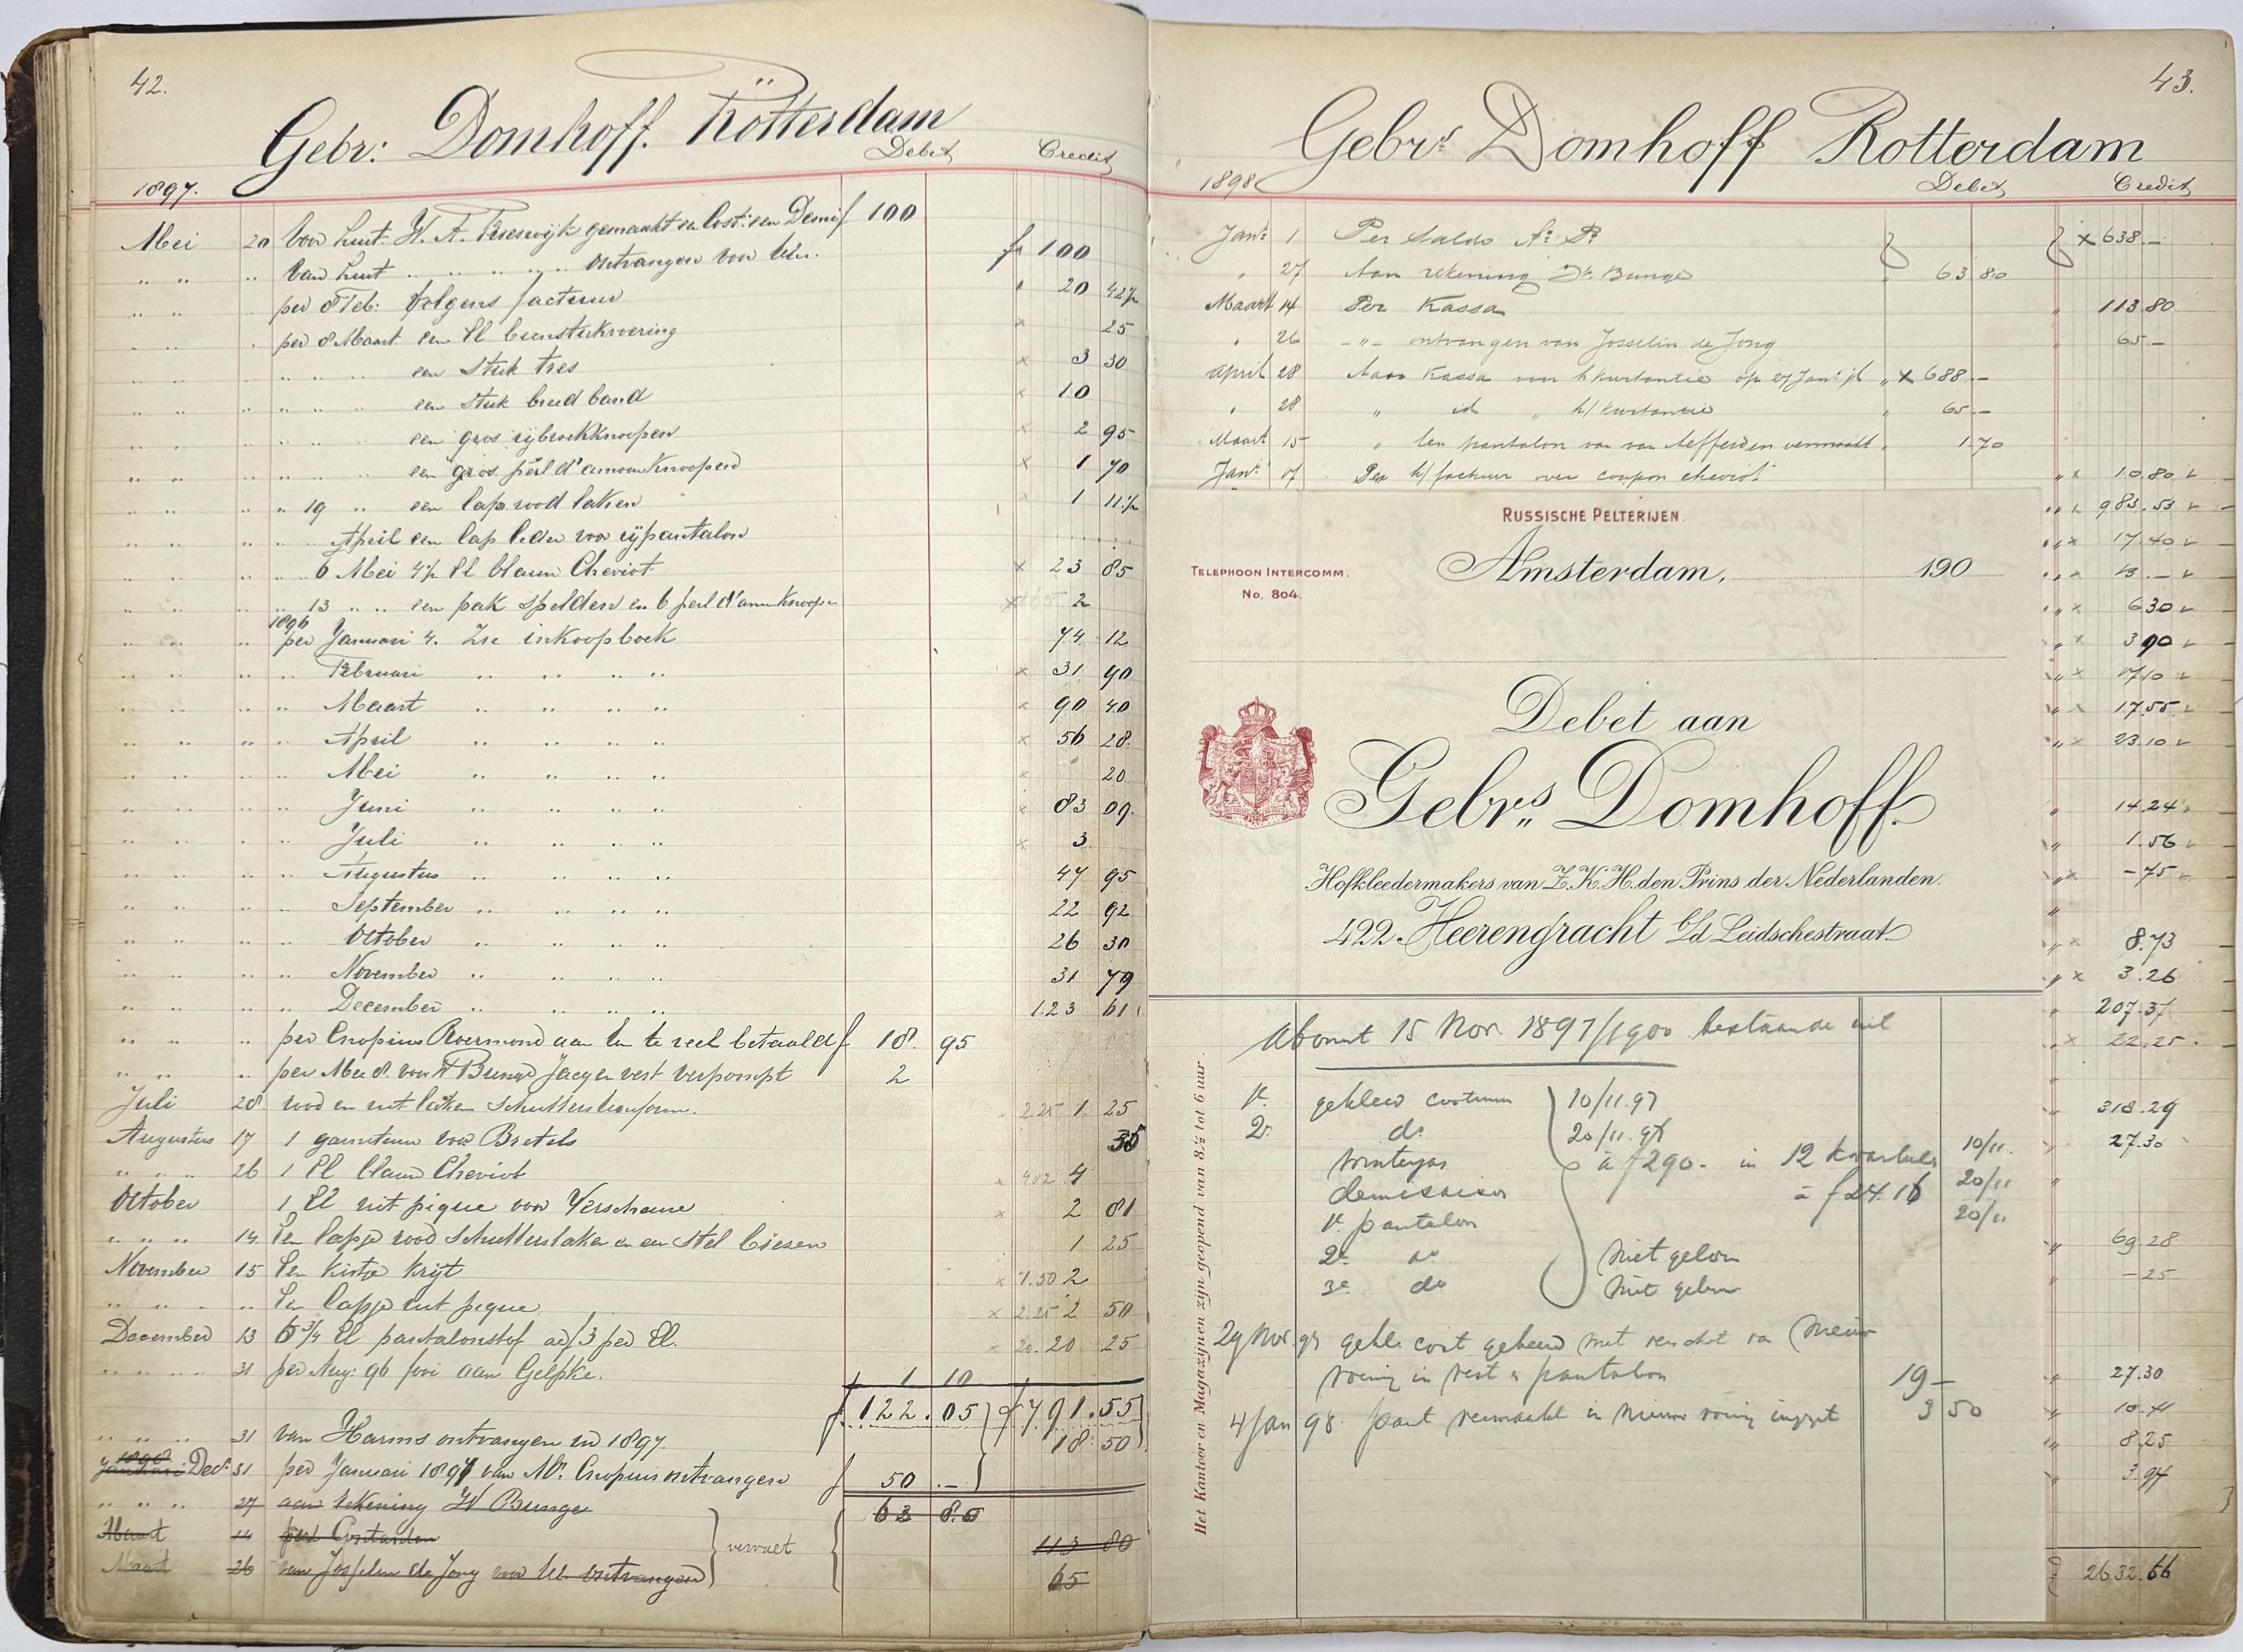 42.
Gebr: Domhoff. Rotterdam
Debet Credit
1897.
Mei 20 Voor Luit: W. A. gemaakt en Cost: een Demi f 100
" " " Van Luit " " " " ontvangen voor Uw. fr 100
" " per 8 Feb: Volgens factuur " 20 42½
" " " per 8 Maart een El voering × 25
" " " " " een Stuk tres × 3 30
" " " " " een Stuk breed band × 10
" " " " " een gros rijbroekknoopen × 2 95
" " " " " een gros perl d'amour Knoopen × 1 70
" " " " 19 " een lap rood laken × 1 11½
" " " " April een lap leder voor rijpantalon
" " " " 6 Mei 4½ El blauw Cheviot × 23 85
" " " " 13 " " een pak Spelden en 6 perl d'amour Knoopen × 2
1896
" " " per Januari 4. Zie inkoopboek 74 12
" " " " Februari " " " " × 31 90
" " " " Maart " " " " × 90 40
" " " " April " " " " × 56 28.
" " " " Mei " " " " × 20
" " " " Juni " " " " × 83 09.
" " " " Juli " " " " × 3
" " " " Augustus " " " " 47 95
" " " " September " " " " 22 92
" " " " October " " " " 26 30
" " " " November " " " " 31 79
" " " " December " " " " 123 61
" " " per Cnopius Roermond aan Uw te veel betaald f 18. 95
" " " per Mei 8. voor Bunge Jaeger vest 2
Juli 28 rood en wit laken Schuttersuniform. 2.25 1. 25
Augustus 17 1 garnituur voor Bretels 35
" " 26 1 El blauw Cheviot × 4.02 4
October 1 El wit pique voor Verschaure × 2 81
" " " 14. Een lapje rood Schutterslaken en een Stel biezen 1 25
November 15 Een Kistje Krijt × 7.50 2
" " " " Een lapje wit pique × 2.25 2 50
December 13 6¾ El pantalonstof ad f 3 per El. × 20. 20 25
" " " " 31 per Aug: 96 fooi aan Gelpke. 1 10
f 122.05 f 791.55
" " " 31 van Harms ontvangen in 1897. 18 50
1898 Januari Dec. 31 per Januari 1897 van Mr. Cnopius ontvangen f 50 . —
" " " 27 aan rekening W Bunge 63 8.0
Maart 14 per Contanten 113 80
vervalt
Maart 26 van Josselin de Jong voor Uw. ontvangen 65
43.
Gebrs. Domhoff Rotterdam
1898 Debet Credit
Jan: 1 Per Saldo × 638 —
" 27 Aan rekening Dr. Bunge " 63 80
Maart 14 Per Kassa " 113 80
" 26 - " - ontvangen van Josselin de Jong " 65 —
April 28 Aan Kassa voor h/kwitantie op 27 Jan: jl " × 688. —
" 28 " id " h/kwitantie " 65. —
Maart 15 " Een pantalon van van vermaakt " 1 70
Jan: 17 Per h/factuur over coupon cheviot " × 10.80
RUSSISCHE PELTERIJEN.
TELEPHOON INTERCOMM.
No. 804.
Amsterdam, 190
Debet aan
Gebrs. Domhoff.
Hofkleedermakers van Z.K.H. den Prins der Nederlanden.
422. Heerengracht b/d Leidschestraat
Het Kantoor en Magazijnen zijn geopend van 8½ tot 6 uur.
Abonnt 15 Nov. 1897/1900 bestaande uit
1e. gekleed costuum 10/11.97
2e. do 20/11.97
winterjas à f 290. - in 12 kwartalen 10/11.
demisaison à f 24.16 20/11
1e. pantalon 20/11
2e do niet gelev
3e do niet gelev
29 Nov. 97 gekl. cost gekeerd met verschot van nieuw
voering in vest & pantalon 19 —
4 Jan 98. pant vermaakt en nieuw voering ingezet 3 50
983.53
17.40
13. —
6 30
3 90
17.10
17.55
23.10
14.24
1.56
- 75
8.73
3.26
207.37
22.25
318.29
27.30
69.28
- 25
27.30
10.41
8.25
3.97
2632.66